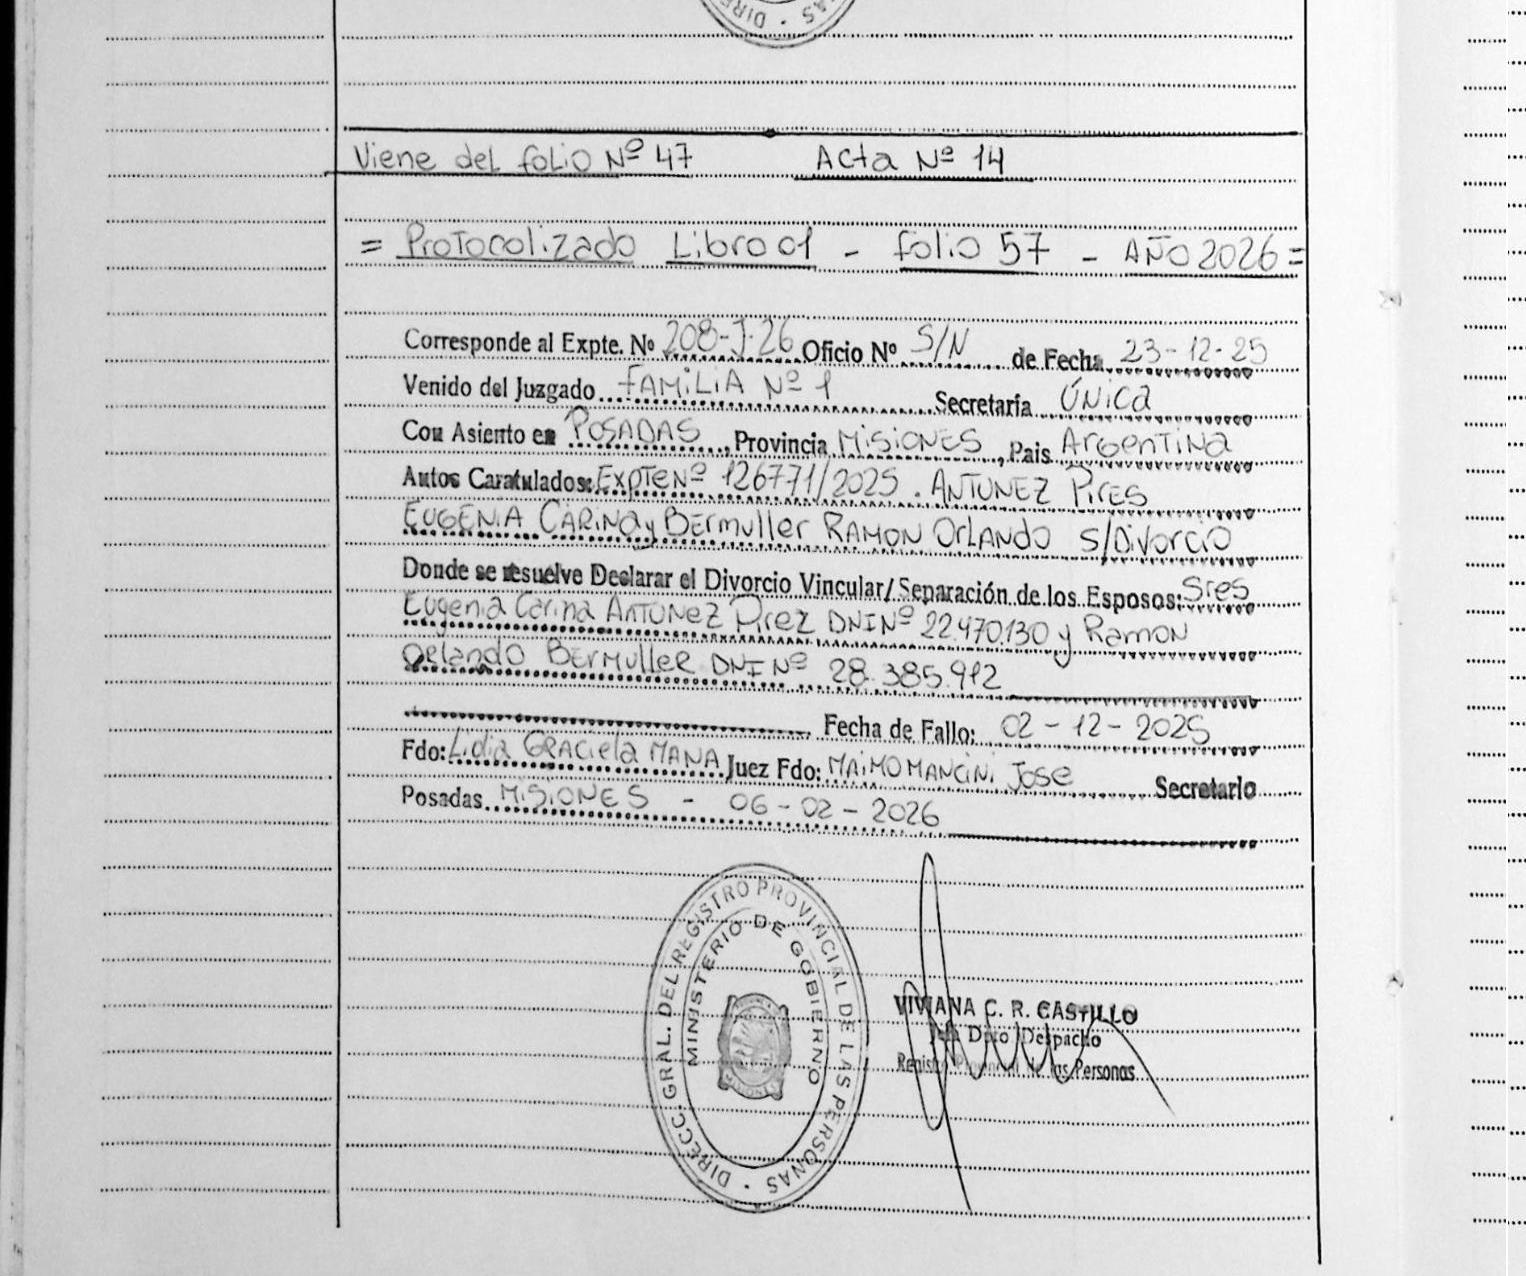 DIREC AS
Viene del folio Nº 47 Acta Nº 14
= Protocolizado Libro 01 - folio 57 - AÑO 2026 =
Corresponde al Expte. Nº 208-J-26 Oficio Nº S/N de Fecha 23-12-25
Venido del Juzgado FAMILIA Nº 1 Secretaría Única
Con Asiento en POSADAS, Provincia MISIONES, Pais Argentina
Autos Caratulados: Expte Nº 126771/2025. ANTUNEZ PIRES
EUGENIA CARINA y BERMULLER RAMON ORLANDO S/Divorcio
Donde se resuelve Declarar el Divorcio Vincular/Separación de los Esposos: Sres
Eugenia Carina ANTUNEZ Pirez DNI Nº 22.470.130 y Ramon
Orlando BERMULLER DNI Nº 28.385.912
Fecha de Fallo: 02-12-2025
Fdo: Lidia GRACiela MANA Juez Fdo: MAIMO MANCINI Jose Secretario
Posadas MISIONES - 06-02-2026
DIRECC. GRAL. DEL REGISTRO PROVINCIAL DE LAS PERSONAS
MINISTERIO DE GOBIERNO
MISIONES
VIVIANA C. R. CASTILLO
Jefa Dpto Despacho
Registro Provincial de las Personas